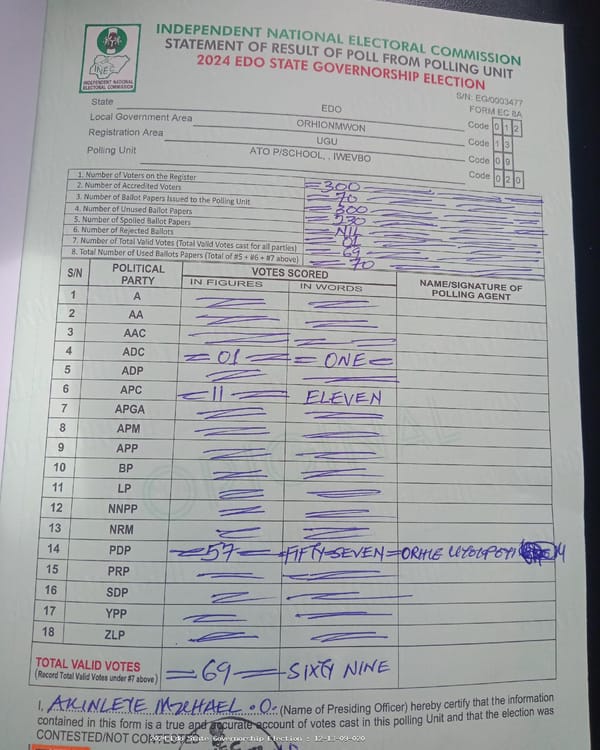 INDEPENDENT NATIONAL ELECTORAL COMMISSION
STATEMENT OF RESULT OF POLL FROM POLLING UNIT
2024 EDO STATE GOVERNORSHIP ELECTION
INEC
INDEPENDENT NATIONAL
ELECTORAL COMMISSION
S/N: EG/0003477
FORM EC 8A
State EDO Code 0 1 2
Local Government Area ORHIONMWON Code 1 3
Registration Area UGU Code 0 9
Polling Unit ATO P/SCHOOL, , IWEVBO Code 0 2 0
1. Number of Voters on the Register =300
2. Number of Accredited Voters =70
3. Number of Ballot Papers Issued to the Polling Unit =300
4. Number of Unused Ballot Papers =230
5. Number of Spoiled Ballot Papers =NIL
6. Number of Rejected Ballots =01
7. Number of Total Valid Votes (Total Valid Votes cast for all parties) =69
8. Total Number of Used Ballots Papers (Total of #5 + #6 + #7 above) =70
S/N POLITICAL PARTY VOTES SCORED NAME/SIGNATURE OF POLLING AGENT
IN FIGURES IN WORDS
1 A
2 AA
3 AAC
4 ADC =01= =ONE=
5 ADP
6 APC =11= ELEVEN
7 APGA
8 APM
9 APP
10 BP
11 LP
12 NNPP
13 NRM
14 PDP =57= FIFTY-SEVEN=
15 PRP
16 SDP
17 YPP
18 ZLP
TOTAL VALID VOTES =69= SIXTY NINE
(Record Total Valid Votes under #7 above)
I, AKINLEYE MICHAEL .O. (Name of Presiding Officer) hereby certify that the information
contained in this form is a true and accurate account of votes cast in this polling Unit and that the election was
CONTESTED/NOT CONTESTED
2024 Edo State Governorship Election : 12-13-09-020